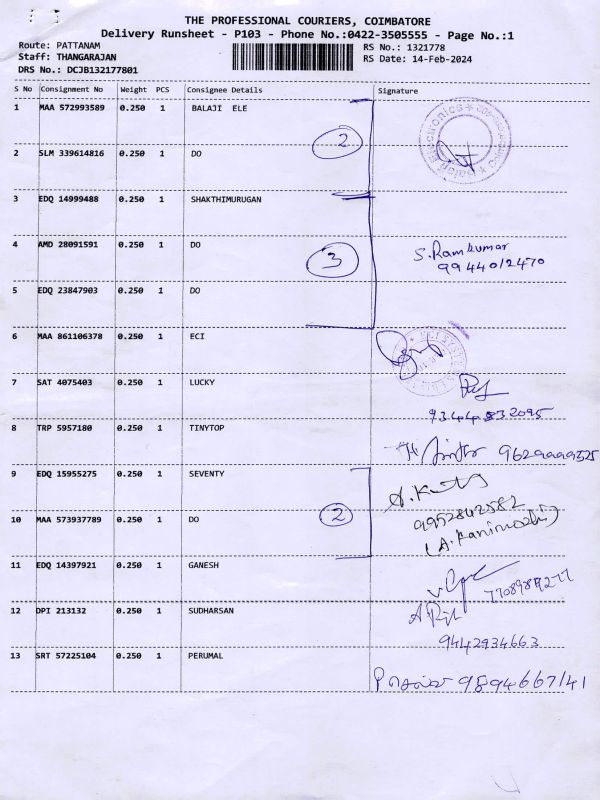 THE PROFESSIONAL COURIERS, COIMBATORE
Delivery Runsheet - P103 - Phone No.:0422-3505555 - Page No.:1
Route: PATTANAM RS No.: 1321778
Staff: THANGARAJAN RS Date: 14-Feb-2024
DRS No.: DCJB132177801
S No Consignment No Weight PCS Consignee Details Signature
1 MAA 572993589 0.250 1 BALAJI ELE
2
2 SLM 339614816 0.250 1 DO
3 EDQ 14999488 0.250 1 SHAKTHIMURUGAN
4 AMD 28091591 0.250 1 DO S. Ramkumar
3 99440 12470
5 EDQ 23847903 0.250 1 DO
6 MAA 861106378 0.250 1 ECI
7 SAT 4075403 0.250 1 LUCKY
9344832095
8 TRP 5957180 0.250 1 TINYTOP
9629999525
9 EDQ 15955275 0.250 1 SEVENTY
2 9952842582
10 MAA 573937789 0.250 1 DO (A. Kanimozhi)
11 EDQ 14397921 0.250 1 GANESH
12 DPI 213132 0.250 1 SUDHARSAN
9442934663
13 SRT 57225104 0.250 1 PERUMAL
9894667141